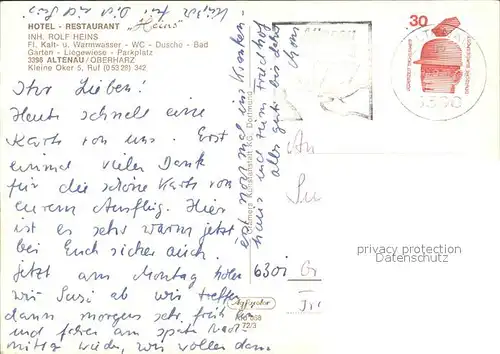 HOTEL - RESTAURANT "Heins"
INH. ROLF HEINS
Fl. Kalt- u. Warmwasser - WC - Dusche - Bad
Garten - Liegewiese - Parkplatz
3396 ALTENAU/OBERHARZ
Kleine Oker 5, Ruf (0 53 28) 342
Ihr Lieben!
Heute schnell eine
Karte von uns. Erst
einmal vielen Dank
für die schöne Karte von
eurem Ausflug. Hier
ist es sehr warm jetzt
bei Euch sicher auch.
Jetzt am Montag holen
wir Susi ab wir treffen
dann morgens sehr früh los
und fahren am späte Nach-
mittag wieder, wir wollen dann
erst noch mal ins Krankenhaus
und zum Friedhof
alles gute bis dahin
An
6301
30
DEUTSCHE BUNDESPOST
ALTENAU
3396
privacy protection
Datenschutz
Agfacolor
72/3